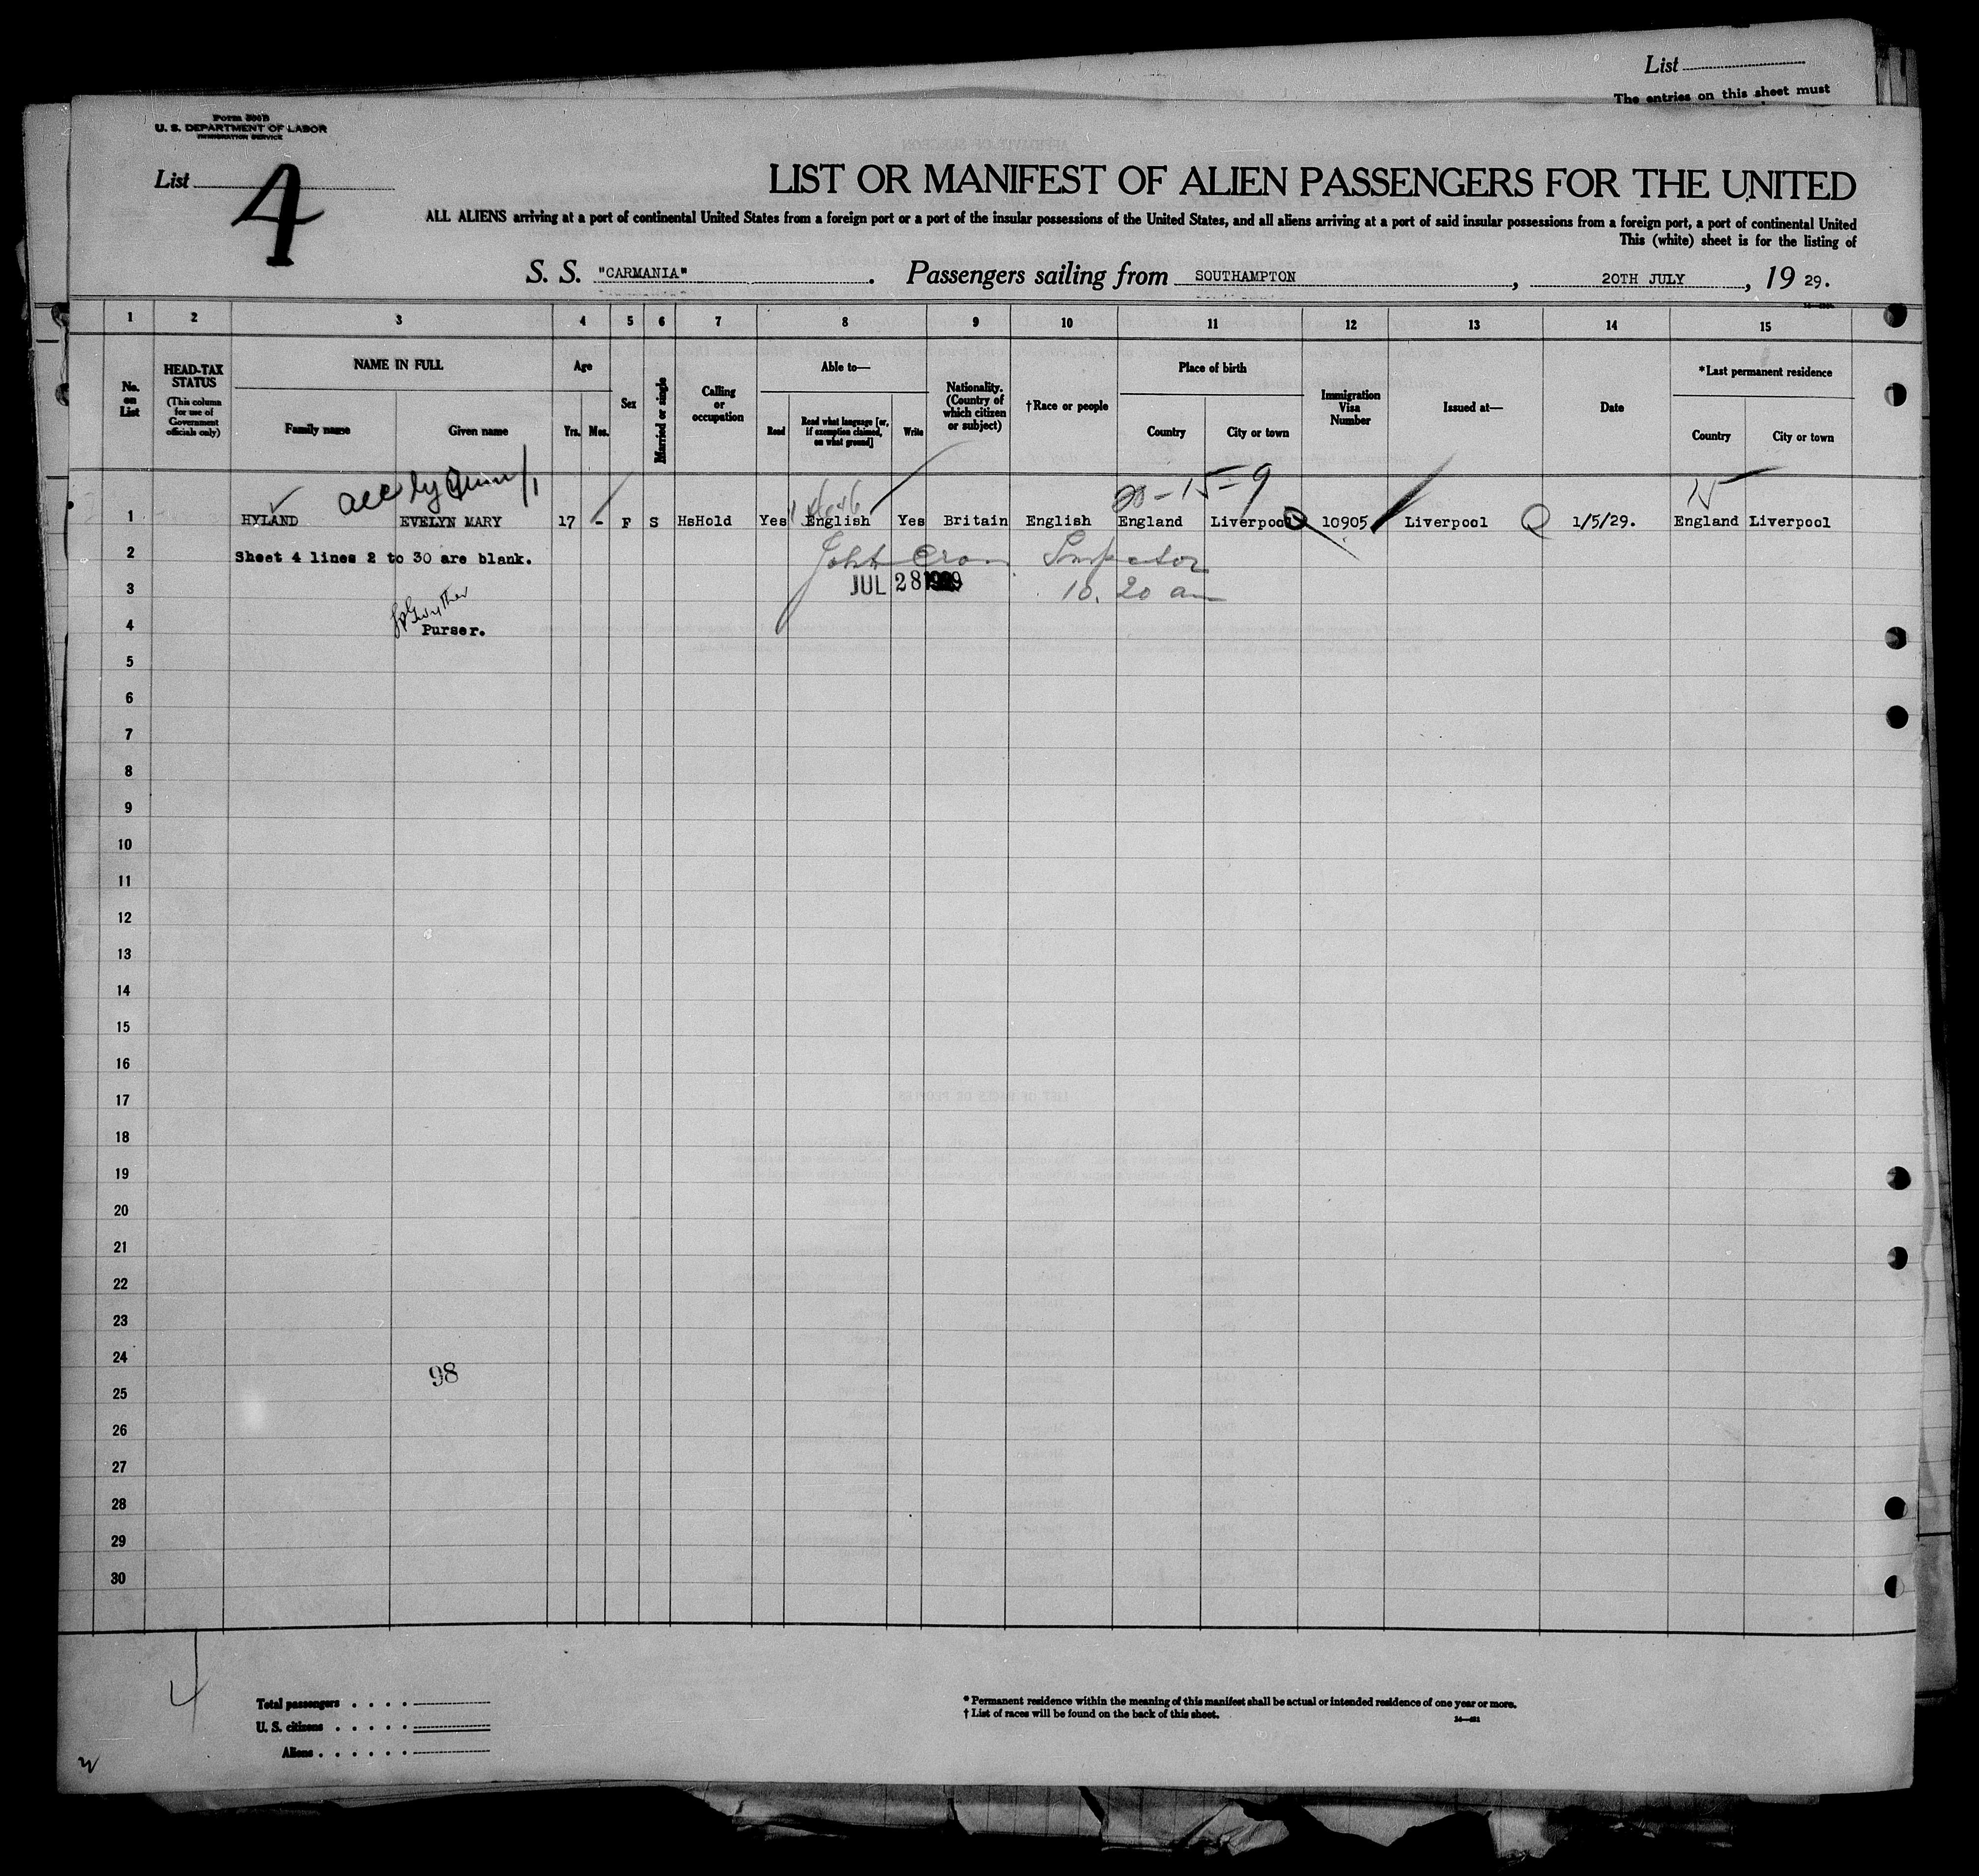 List
The entries on this sheet must
U. S. DEPARTMENT OF LABOR
IMMIGRATION SERVICE
List 4
LIST OR MANIFEST OF ALIEN PASSENGERS FOR THE UNITED
ALL ALIENS arriving at a port of continental United States from a foreign port or a port of the insular possessions of the United States, and all aliens arriving at a port of said insular possessions from a foreign port, a port of continental United
This (white) sheet is for the listing of
S. S. "CARMANIA" . Passengers sailing from SOUTHAMPTON , 20TH JULY , 19 29.
1 2 3 4 5 6 7 8 9 10 11 12 13 14 15
No. on List
HEAD-TAX STATUS
(This column for use of Government officials only)
NAME IN FULL
Family name Given name
Age
Yrs. Mos.
Sex
Married or single
Calling or occupation
Able to—
Read Read what language [or, if exemption claimed, on what ground] Write
Nationality. (Country of which citizen or subject)
†Race or people
Place of birth
Country City or town
Immigration Visa Number
Issued at—
Date
*Last permanent residence
Country City or town
20-15-9
15
1 HYLAND EVELYN MARY 17 - F S HsHold Yes English Yes Britain English England Liverpool 10905 Liverpool Q 1/5/29. England Liverpool
2 Sheet 4 lines 2 to 30 are blank. John Inspector
3 JUL 28 1929 10.20 am
4 Purser.
5
6
7
8
9
10
11
12
13
14
15
16
17
18
19
20
21
22
23
24
98
25
26
27
28
29
30
4
Total passengers . . . .
U. S. citizens . . . . .
Aliens . . . . . .
* Permanent residence within the meaning of this manifest shall be actual or intended residence of one year or more.
† List of races will be found on the back of this sheet.